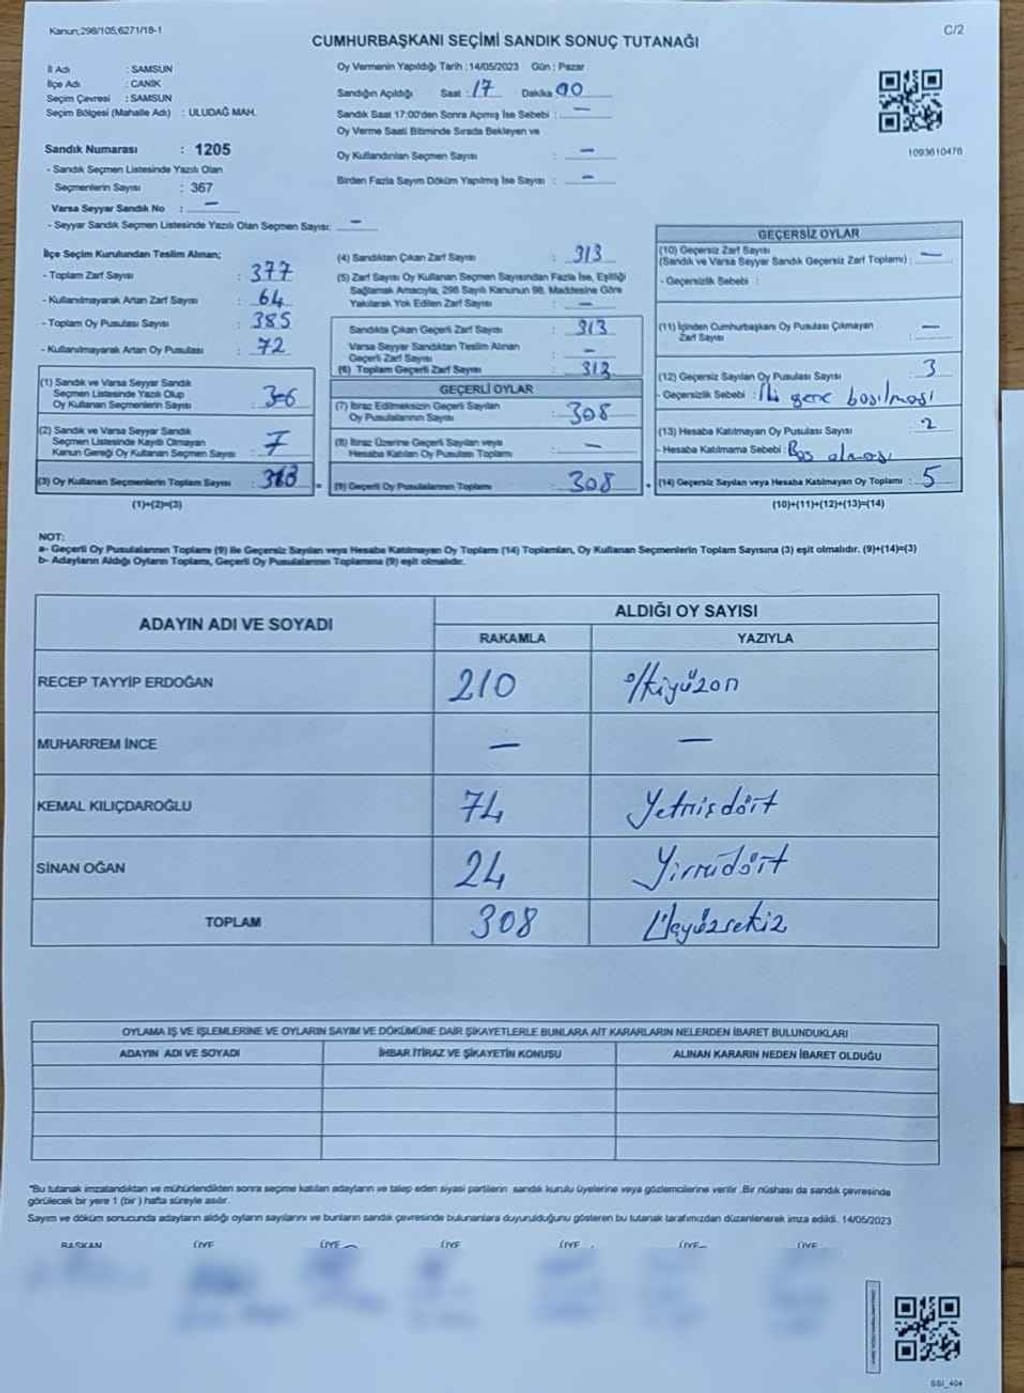 Kanun;298/105,6271/18-1
C/2
CUMHURBAŞKANI SEÇİMİ SANDIK SONUÇ TUTANAĞI
İl Adı : SAMSUN
İlçe Adı : CANİK
Seçim Çevresi : SAMSUN
Seçim Bölgesi (Mahalle Adı) : ULUDAĞ MAH.
Sandık Numarası : 1205
- Sandık Seçmen Listesinde Yazılı Olan
Seçmenlerin Sayısı : 367
Varsa Seyyar Sandık No : —
- Seyyar Sandık Seçmen Listesinde Yazılı Olan Seçmen Sayısı: —
Oy Vermenin Yapıldığı Tarih :14/05/2023 Gün : Pazar
Sandığın Açıldığı Saat : 17 Dakika 00
Sandık Saat 17:00'den Sonra Açımış İse Sebebi : —
Oy Verme Saati Bitiminde Sırada Bekleyen ve
Oy Kullandırılan Seçmen Sayısı : —
Birden Fazla Sayım Döküm Yapılmış İse Sayısı : —
1093610476
İlçe Seçim Kurulundan Teslim Alınan;
- Toplam Zarf Sayısı : 377
- Kullanılmayarak Artan Zarf Sayısı : 64
- Toplam Oy Pusulası Sayısı : 385
- Kullanılmayarak Artan Oy Pusulası : 72
(1) Sandık ve Varsa Seyyar Sandık
Seçmen Listesinde Yazılı Olup
Oy Kullanan Seçmenlerin Sayısı :
(2) Sandık ve Varsa Seyyar Sandık
Seçmen Listesinde Kayıtlı Olmayan
Kanun Gereği Oy Kullanan Seçmen Sayısı : 7
(3) Oy Kullanan Seçmenlerin Toplam Sayısı : 313
(1)+(2)=(3)
(4) Sandıktan Çıkan Zarf Sayısı : 313
(5) Zarf Sayısı Oy Kullanan Seçmen Sayısından Fazla İse, Eşitliği
Sağlamak Amacıyla, 298 Sayılı Kanunun 98. Maddesine Göre
Yakılarak Yok Edilen Zarf Sayısı : —
Sandıkta Çıkan Geçerli Zarf Sayısı : 313
Varsa Seyyar Sandıktan Teslim Alınan
Geçerli Zarf Sayısı : —
(6) Toplam Geçerli Zarf Sayısı : 313
GEÇERLİ OYLAR
(7) İtiraz Edilmeksizin Geçerli Sayılan
Oy Pusulalarının Sayısı : 308
(8) İtiraz Üzerine Geçerli Sayılan veya
Hesaba Katılan Oy Pusulası Toplamı : —
(9) Geçerli Oy Pusulalarının Toplamı : 308
GEÇERSİZ OYLAR
(10) Geçersiz Zarf Sayısı
(Sandık ve Varsa Seyyar Sandık Geçersiz Zarf Toplamı) : —
- Geçersizlik Sebebi :
(11) İçinden Cumhurbaşkanı Oy Pusulası Çıkmayan
Zarf Sayısı : —
(12) Geçersiz Sayılan Oy Pusulası Sayısı : 3
- Geçersizlik Sebebi : İki yere basılması
(13) Hesaba Katılmayan Oy Pusulası Sayısı : 2
- Hesaba Katılmama Sebebi : Boş olması
(14) Geçersiz Sayılan veya Hesaba Katılmayan Oy Toplamı : 5
(10)+(11)+(12)+(13)=(14)
NOT:
a- Geçerli Oy Pusulalarının Toplamı (9) ile Geçersiz Sayılan veya Hesaba Katılmayan Oy Toplamı (14) Toplamları, Oy Kullanan Seçmenlerin Toplam Sayısına (3) eşit olmalıdır. (9)+(14)=(3)
b- Adayların Aldığı Oyların Toplamı, Geçerli Oy Pusulalarının Toplamına (9) eşit olmalıdır.
ADAYIN ADI VE SOYADI
ALDIĞI OY SAYISI
RAKAMLA YAZIYLA
RECEP TAYYİP ERDOĞAN 210 İkiyüzon
MUHARREM İNCE — —
KEMAL KILIÇDAROĞLU 74 Yetmişdört
SİNAN OĞAN 24 Yirmidört
TOPLAM 308 Üçyüzsekiz
OYLAMA İŞ VE İŞLEMLERİNE VE OYLARIN SAYIM VE DÖKÜMÜNE DAİR ŞİKAYETLERLE BUNLARA AİT KARARLARIN NELERDEN İBARET BULUNDUKLARI
ADAYIN ADI VE SOYADI İHBAR İTİRAZ VE ŞİKAYETİN KONUSU ALINAN KARARIN NEDEN İBARET OLDUĞU
"Bu tutanak imzalandıktan ve mühürlendikten sonra seçime katılan adayların ve talep eden siyasi partilerin sandık kurulu üyelerine veya gözlemcilerine verilir .Bir nüshası da sandık çevresinde
görülecek bir yere 1 (bir ) hafta süreyle asılır.
Sayım ve döküm sonucunda adayların aldığı oyların sayılarını ve bunların sandık çevresinde bulunanlara duyurulduğunu gösteren bu tutanak tarafımızdan düzenlenerek imza edildi. 14/05/2023
BAŞKAN ÜYE ÜYE ÜYE ÜYE ÜYE ÜYE
SSI_404